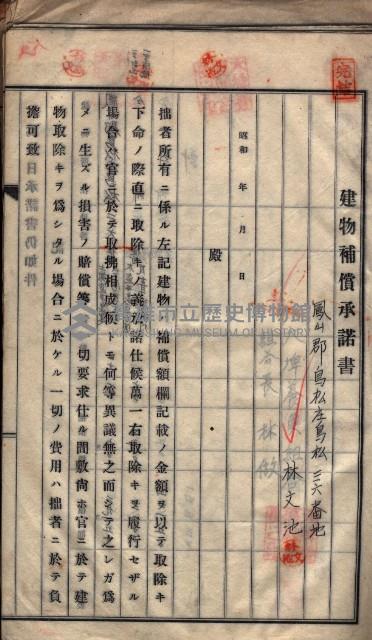 建物補償承諾書
鳳山郡鳥松庄鳥松三六番地
林文池
組合長 林
殿
昭和 年 月 日
拙者所有ニ係ル左記建物ノ補償額欄記載ノ金額ヲ以テ取除キ
下命ノ際直ニ取除キノ義承諾仕候萬一右取除キヲ履行セザル
場合ハ官ニ於テ取拂相成候トモ何等異議無之而シテ之レガ為
メニ生ズル損害ノ賠償等一切要求仕ル間敷尚ホ官ニ於テ建
物取除キヲ為シタル場合ニ於ケル一切ノ費用ハ拙者ニ於テ負
擔可致日承諾書仍如件
高雄市立歷史博物館
MUSEUM OF HISTORY